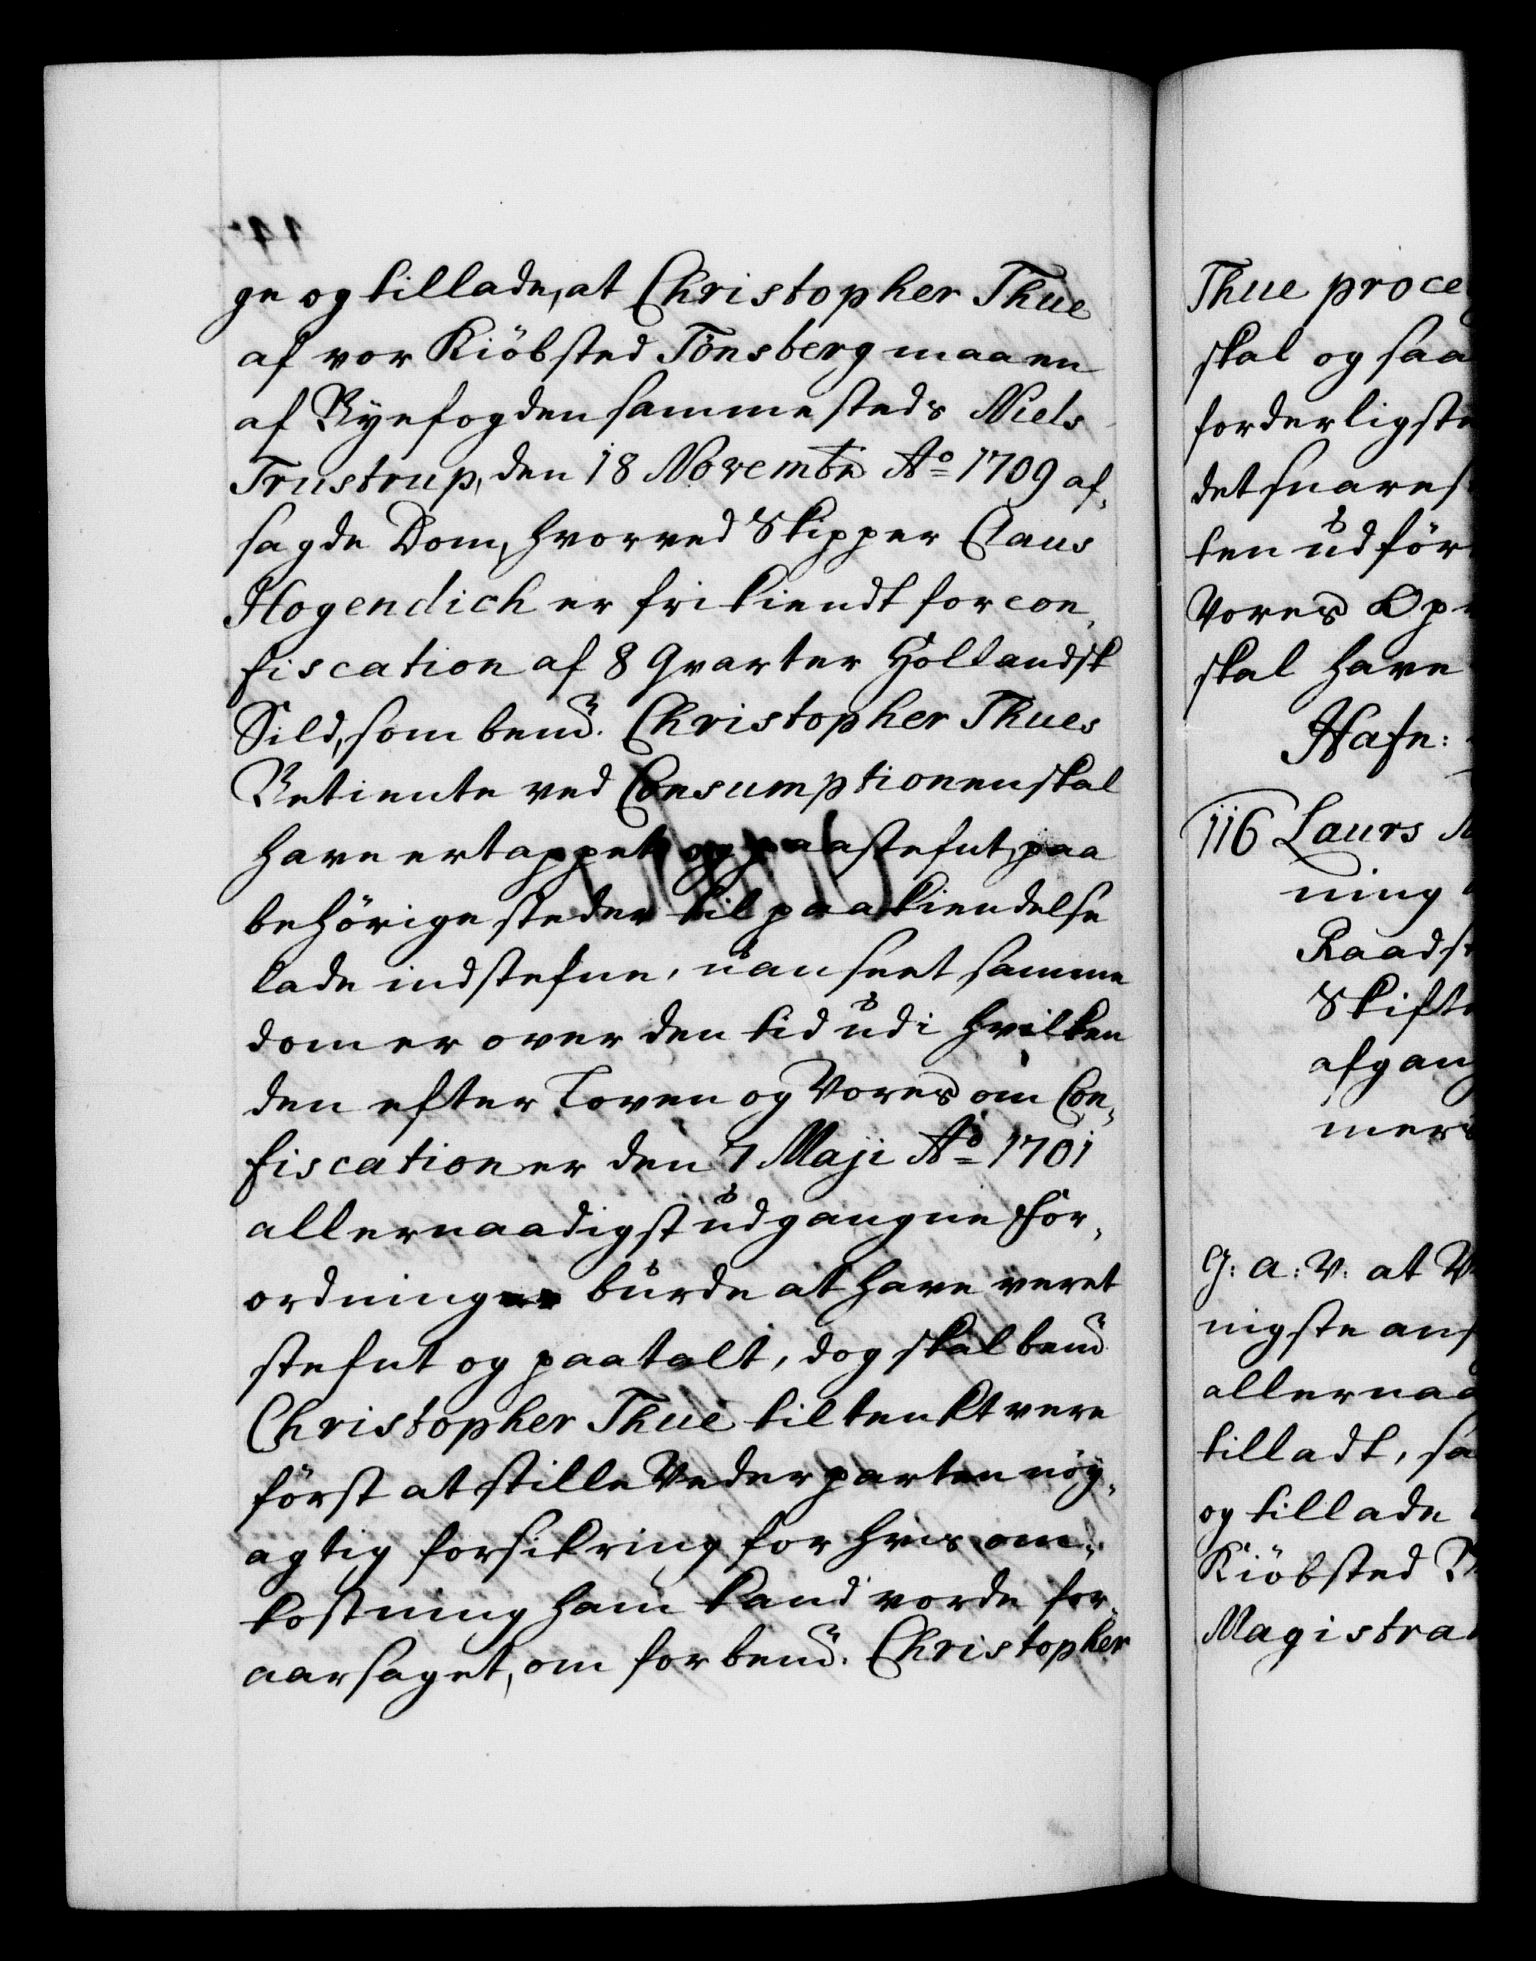 ge og tillade, at Christopher Thue
af vor Kiöbsted Tönsberg maa en
af Byefogden sammesteds Niels
Trustrup, den 18 Novembr Aº 1709 af-
sagde Dom, hvorved Skipper Claus
Hogendich er frikiendt for con-
fiscation af 8 Qvarter Hollandsk
Sild, som bem.te Christopher Thues
Betiente ved Consumptionen skal
have ertappet og paastefnt, paa
behörige steder til paakiendelse
lade indstefne, uanseet samme
dom er over den tid udi hvilken
den efter Loven og Vores om Con-
fiscationer den 7 Maji Aº 1701
allernaadigst udgangne For-
ordning burde at have veret
stefnt og paatalt, dog skal bem.te
Christopher Thue tiltenkt vere
först at stille Vederparten nöy-
agtig forsikring for hvis om-
kostning ham kand vorde for-
aarsaget, om for bem.te Christopher
Thue proce
skal og saa
forderligste
det snares
ten udför
Vores Op
skal have
Hafn:
116 Laurs
ning
Raads
Skifte
afgan
mer
G: A: V: at V
nigste ans
allernaa
tilladt, sa
og tillade
Kiöbsted
Magistra